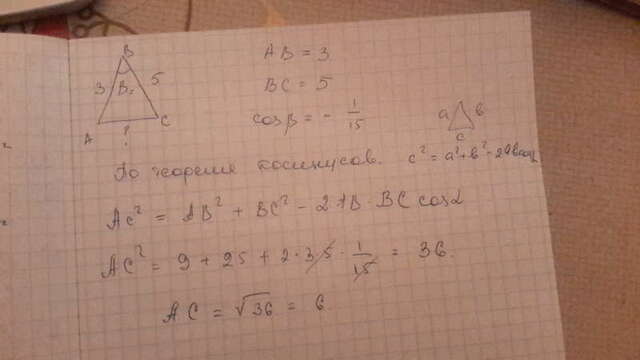 B
3 B 5
A C
?
AB = 3
BC = 5
cosβ = - 1/15
a в
c
По теореме косинусов. c² = a² + в² - 2ав cosα
AC² = AB² + BC² - 2AB · BC cosα
AC² = 9 + 25 + 2 · 3 · 5 · 1/15 = 36.
AC = √36 = 6